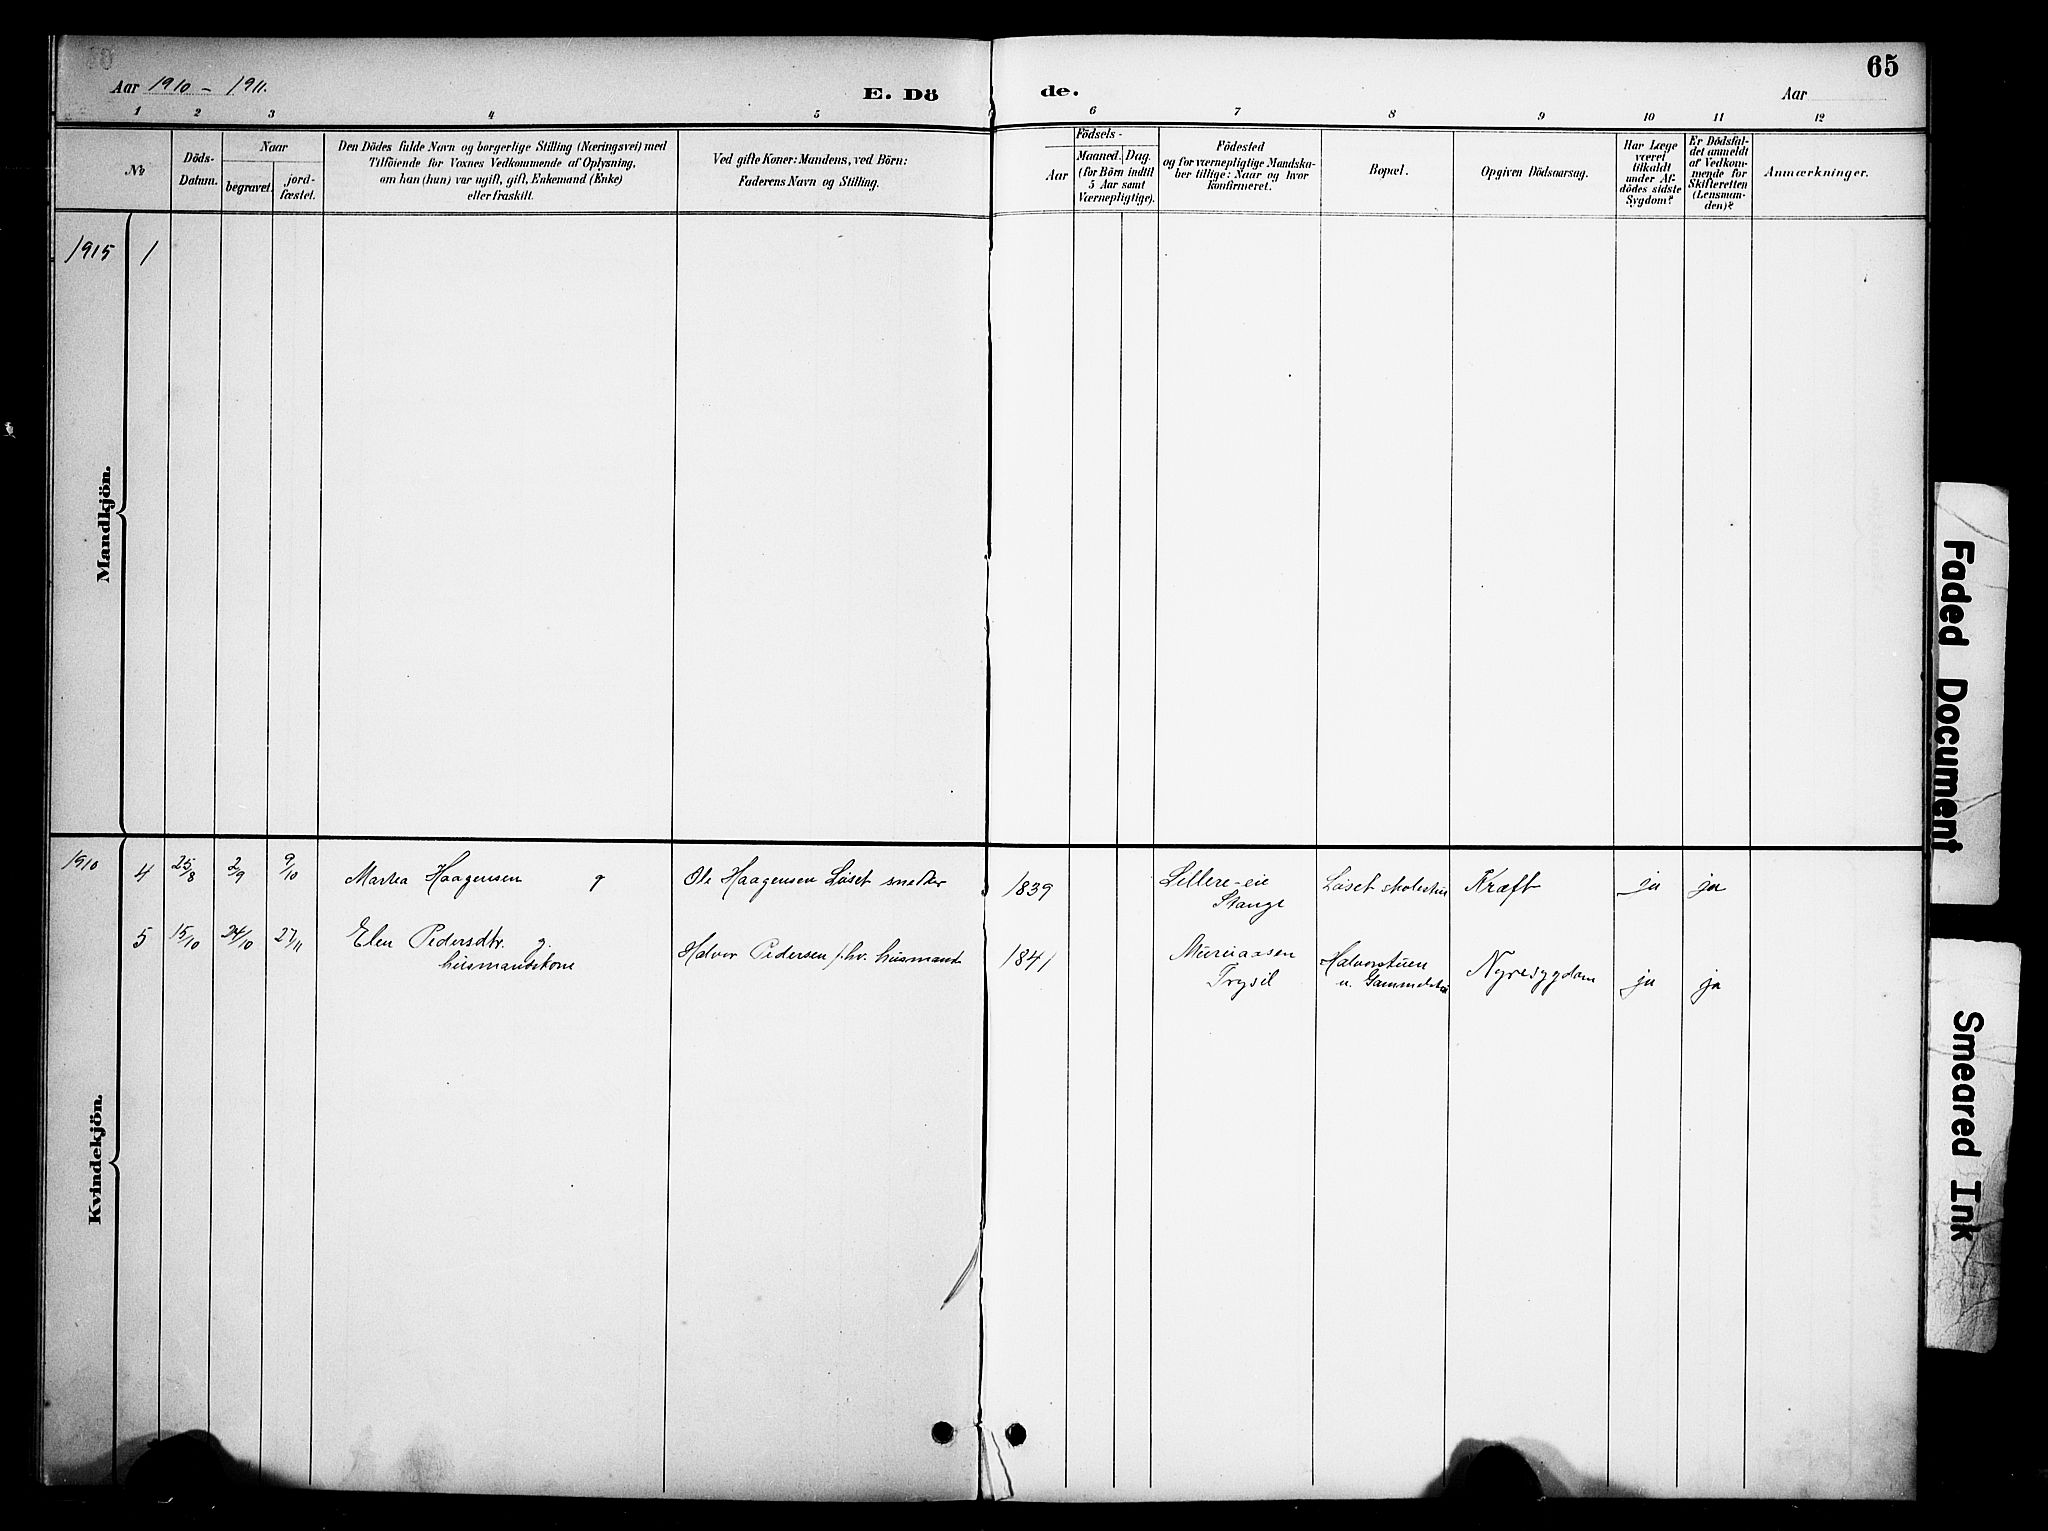 Aar 1910 - 1911.
E. Dö
de.
Aar
65
1 2 3 4 5 6 7 8 9 10 11 12
No
Döds-
Datum.
Naar
begravet.
jord-
fæstet.
Den Dödes fulde Navn og borgerlige Stilling (Næringsvei) med
Tilföiende for Voxnes Vedkommende af Oplysning,
om han (hun) var ugift, gift, Enkemand (Enke)
eller fraskilt.
Ved gifte Koner: Mandens, ved Börn:
Faderens Navn og Stilling.
Födsels-
Aar
Maaned. Dag.
(for Börn indtil
5 Aar samt
Værnepligtige).
Födested
og for værnepligtige Mandska-
ber tillige: Naar og hvor
konfirmeret.
Bopæl.
Opgiven Dödsaarsag.
Har Læge
været
tilkaldt
under Af-
dödes sidste
Sygdom?
Er Dödsfal-
det anmeldt
af Vedkom-
mende for
Skifteretten
(Lensman-
den)?
Anmærkninger.
1915 1
Mandkjön.
1910 4 25/8 2/9 9/10 Martea Haagensen g Ole Haagensen Løset smed 1839 Lillere-eie Stange Løset Kræft ja ja
5 15/10 24/10 27/11 Elen Pedersdtr. g. husmandskone Halvor Pedersen fhv. husmand 1841 Trysil Halvorstuen u. Nyresygdom ja ja
Kvindekjön.
Faded Document
Smeared Ink